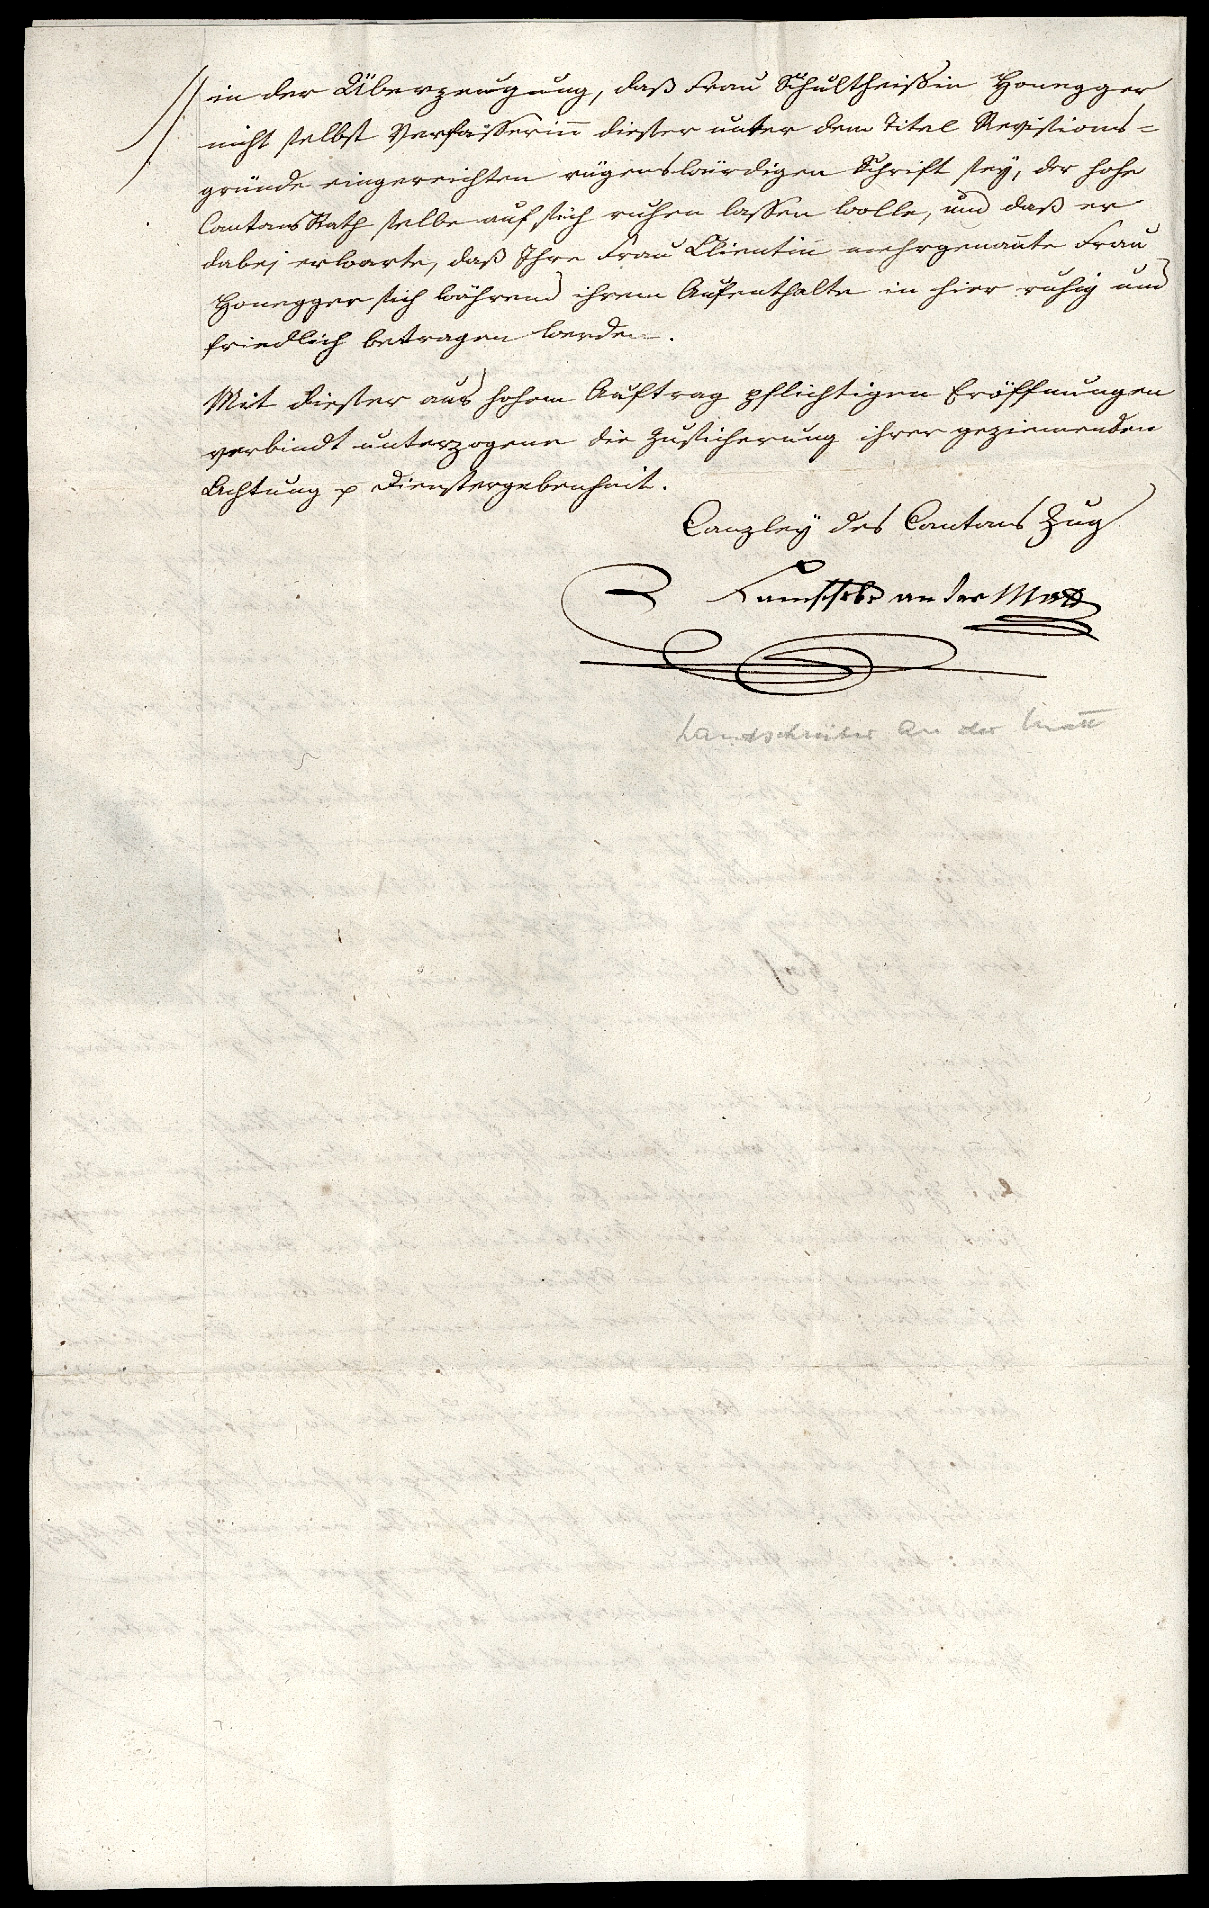 in der Überzeugung, daß Frau Schultheißin Honegger
nicht selbst Verfasserinn dieser unter dem Titel Revisions=
gründe eingereichten rügenswürdigen Schrift sey, der hohe
CantonsRath selbe auf sich ruhen lassen wolle, und daß er
dabej erwarte, daß Ihre Frau Clientin̄ mehrgenan̄te Frau
Honegger sich während ihrem Aufenthalte in hier ruhig und
friedlich betragen werden.
Mit dieser aus hohem Auftrag pflichtigen Eröffnungen
verbindt unterzogene die Zusicherung ihrer geziemenden
Achtung & Dienstergebenheit.
Canzley des Cantons Zug
Landschrbr an der Matt
Landschreiber an der Matt